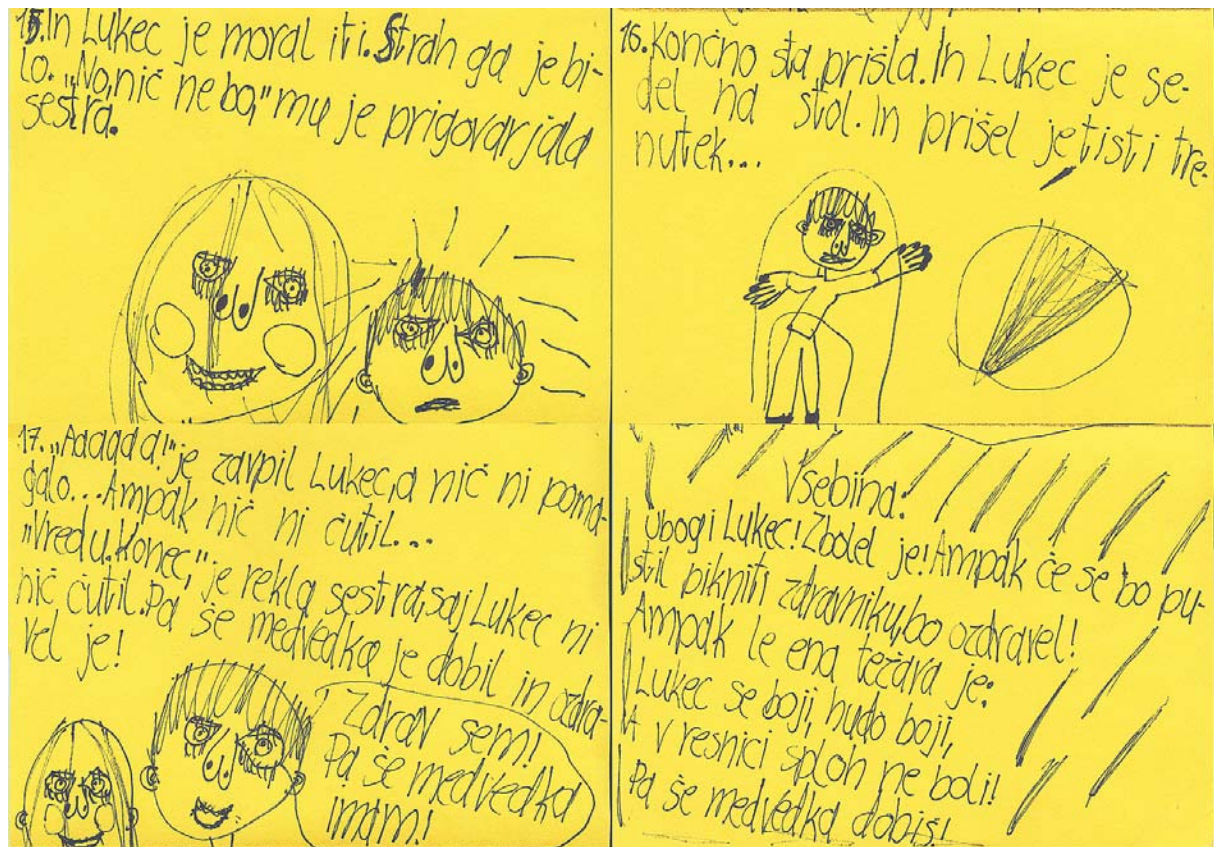 15. In Lukec je moral iti. Strah ga je bi-
lo. "No, nič ne bo," mu je prigovarjala
sestra.
16. Končno sta prišla. In Lukec je se-
del na stol. In prišel je tisti tre-
nutek...
17. "Aaaaa!" je zavpil Lukec, a nič ni poma-
galo... Ampak nič ni čutil...
"Vredu. Konec," je rekla sestra, saj Lukec ni
nič čutil. Pa še medvedka je dobil in ozdra-
vel je!
Zdrav sem!
Pa še medvedka
imam!
Vsebina:
Ubogi Lukec! Zbolel je! Ampak če se bo pu-
stil pikniti zdravniku, bo ozdravel!
Ampak le ena težava je:
Lukec se boji, hudo boji,
A v resnici sploh ne boli!
Pa še medvedka dobiš!